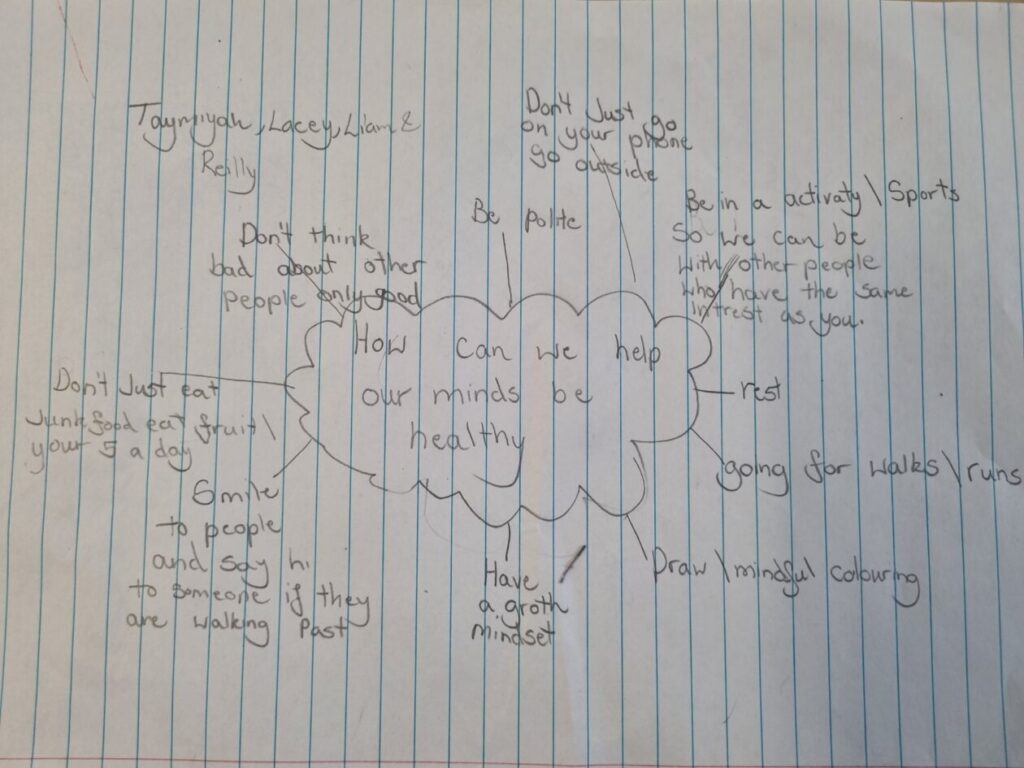 Taymiyah, Lacey, Liam &
Reilly
Don't Just go
on your phone
go outside
Be polite
Be in a activaty \ Sports
So we can be
with other people
who have the same
intrest as you.
Don't think
bad about other
people only good
How can we help
our minds be
healthy
Don't Just eat
Junk food eat fruit \
your 5 a day
rest
going for walks \ runs
Smile
to people
and say hi
to someone if they
are walking past
Have
a groth
mindset
Draw \ mindful colouring